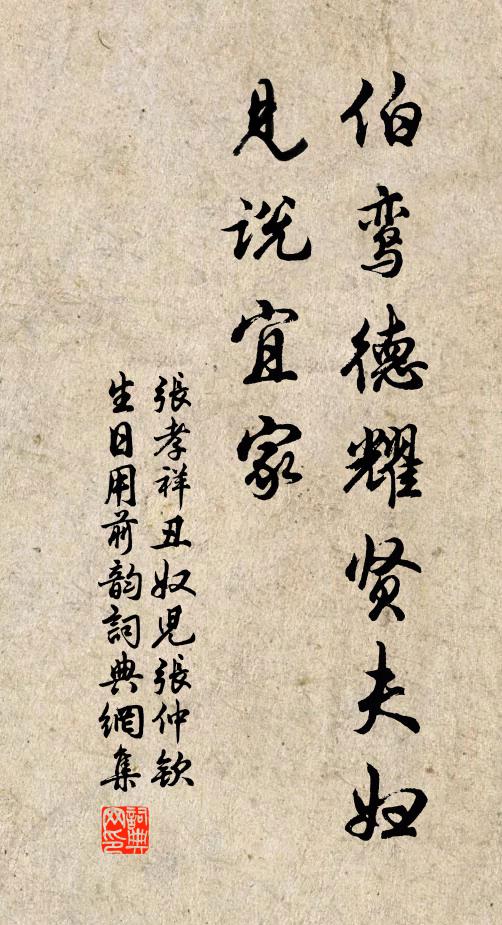 伯鸾德耀贤夫妇
见说宜家
張孝祥丑奴児張仲欽
生日用前韵詞典網集
詞典
网印